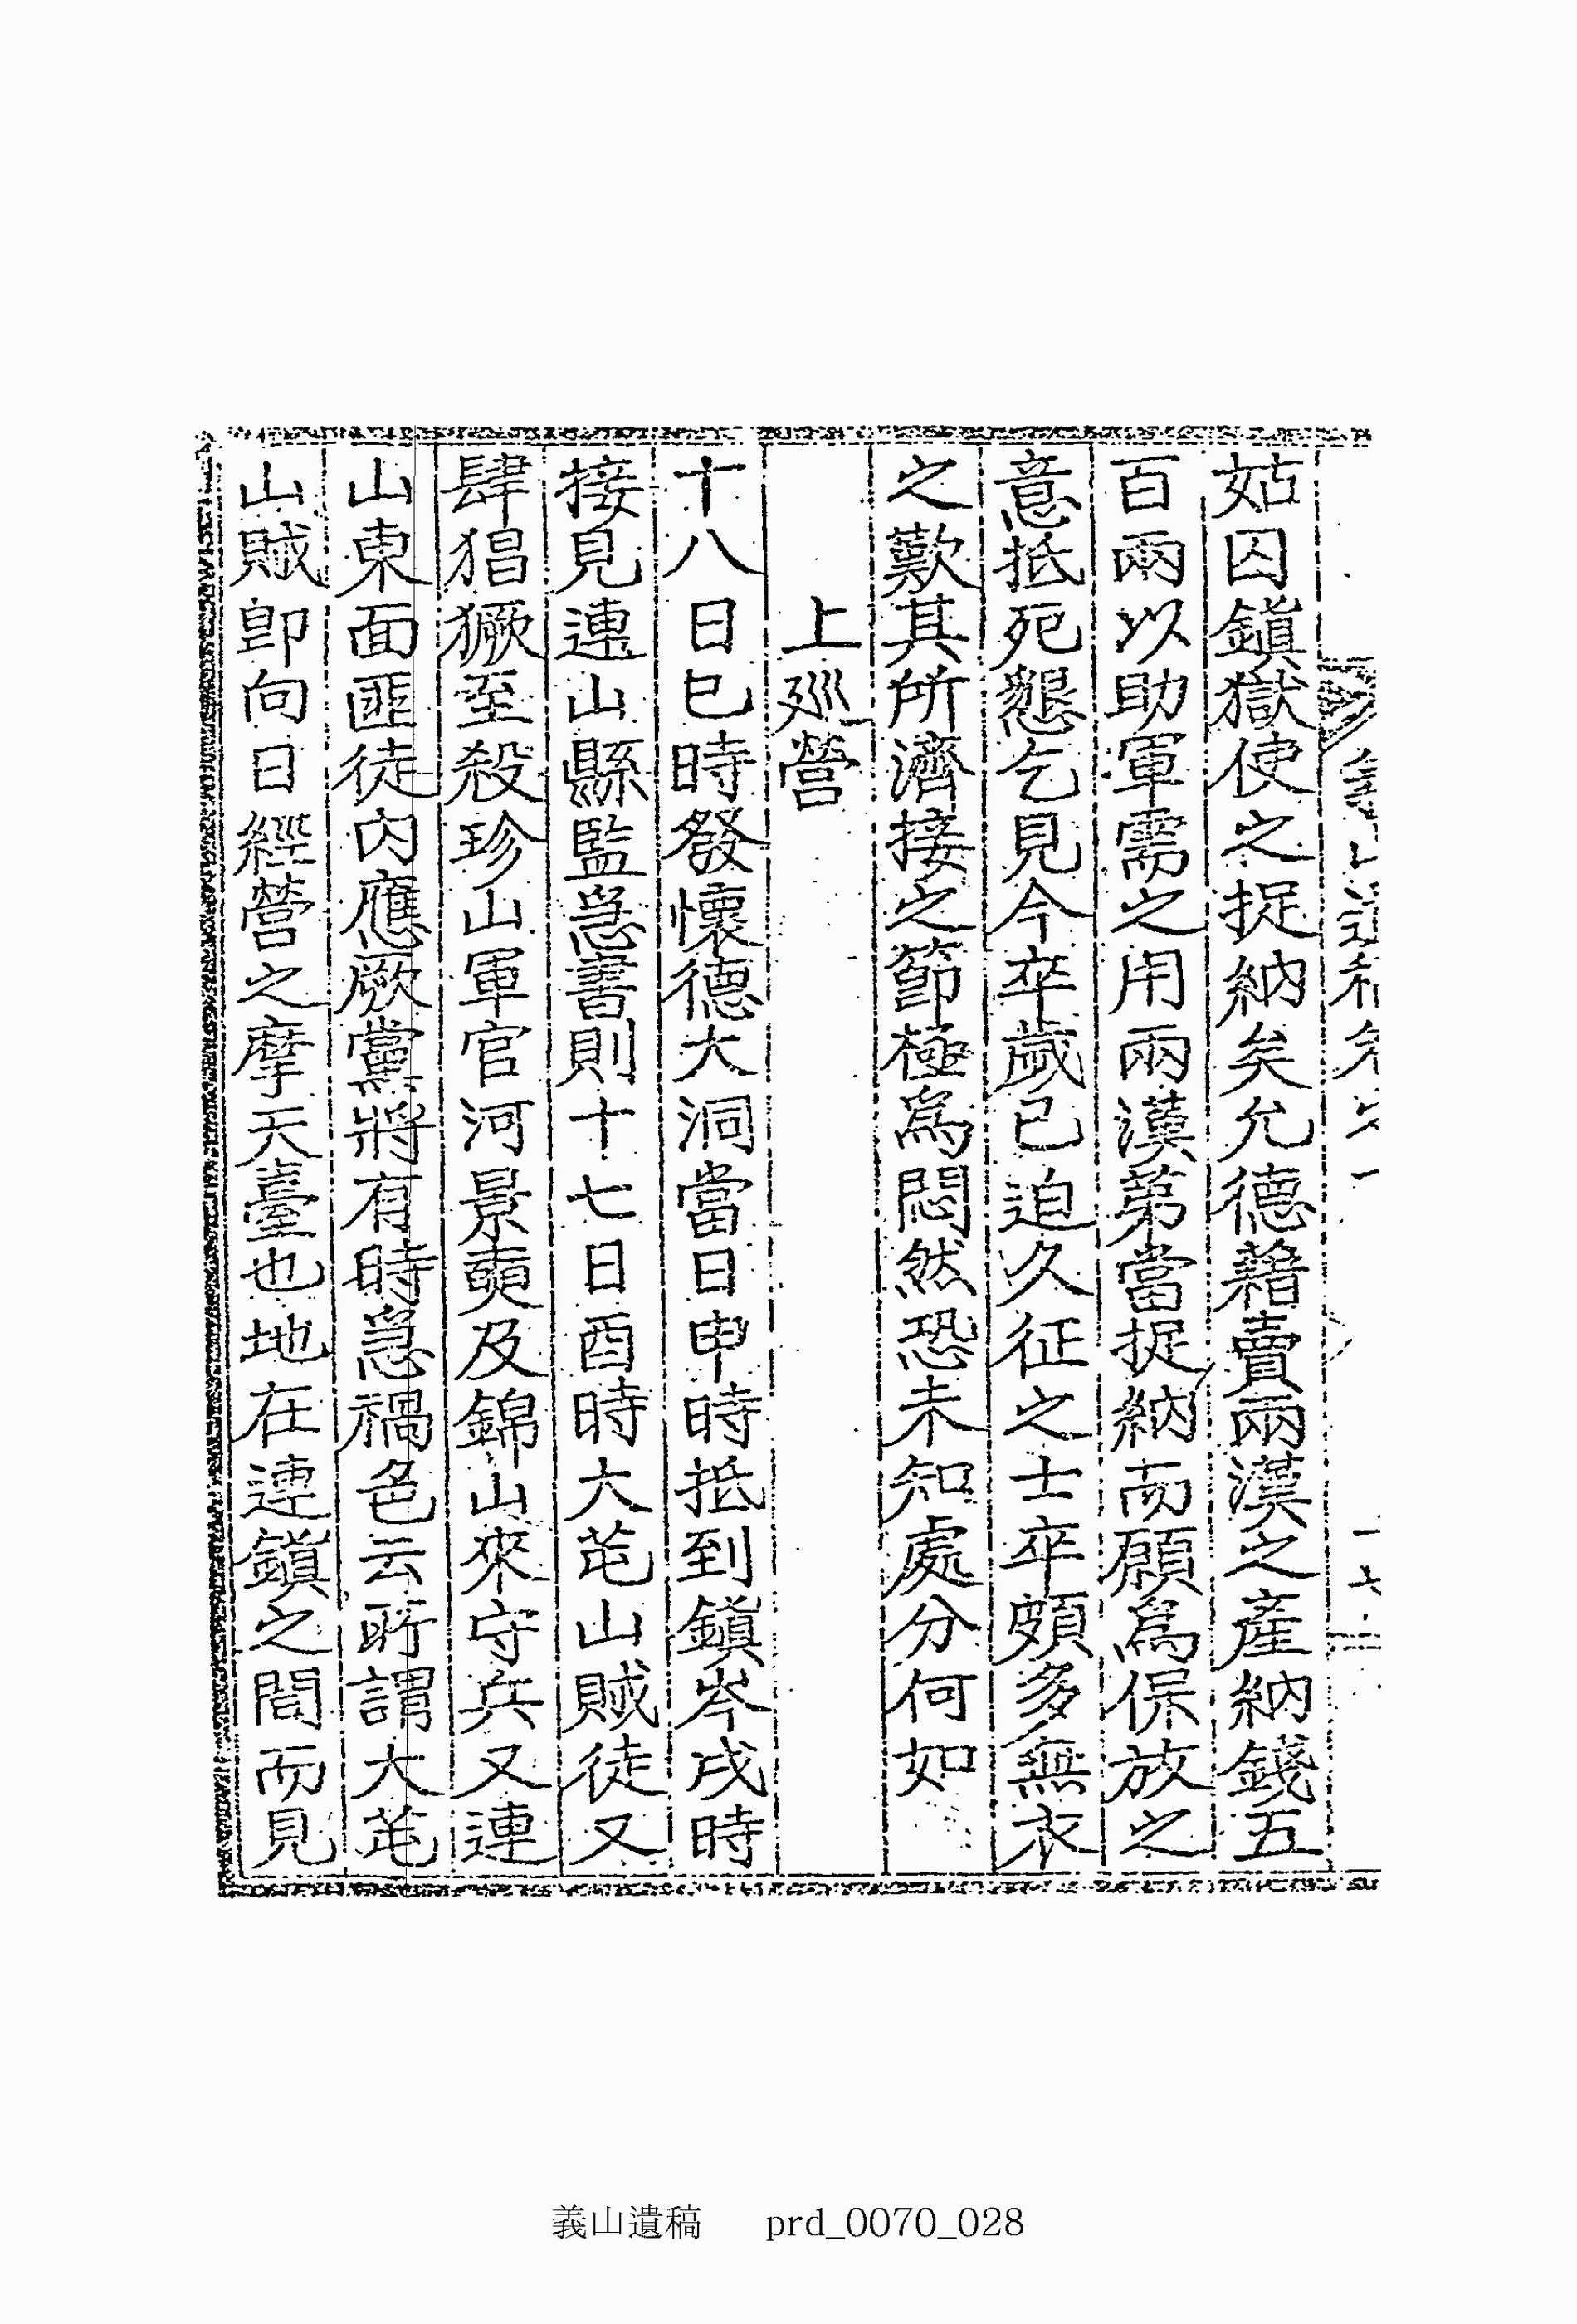 姑囚鎭獄使之捉納矣允德籍賣兩漢之産納錢五
百兩以助軍需之用兩漢第當捉納而願爲保放之
意抵死懇乞見今卒歲已迫久征之士卒頗多無衣
之歎其所濟接之節極爲悶然恐未知處分何如
上巡營
十八日巳時發懷德大洞當日申時抵到鎭岑戌時
接見連山縣監急書則十七日酉時大芚山賊徒又
肆猖獗至殺珍山軍官河景奭及錦山來守兵又連
山東面匪徒內應厥黨將有時急禍色云所謂大芚
山賊卽向日經營之摩天臺也地在連鎭之間而見
義山遺稿 prd_0070_028